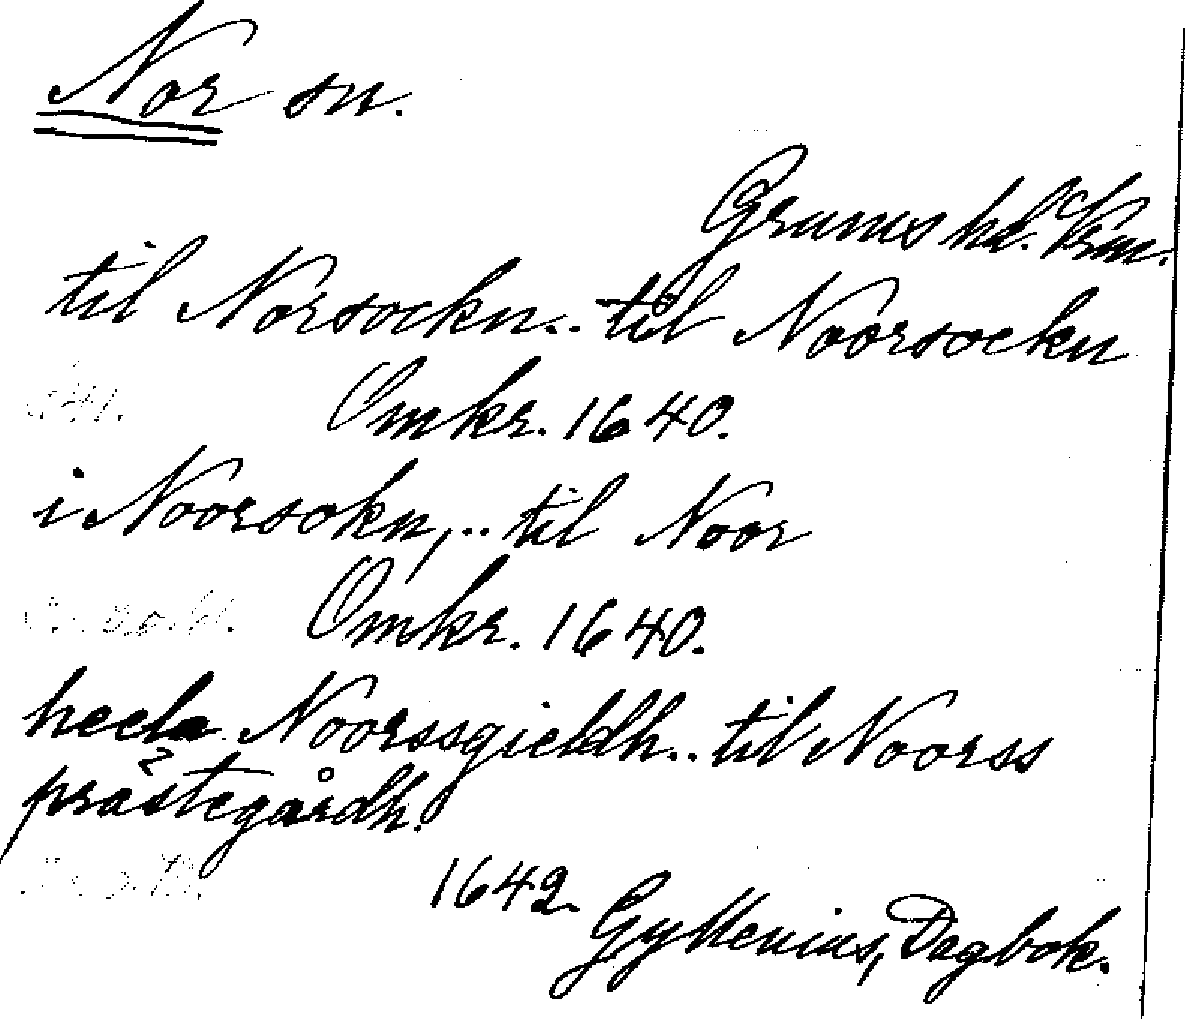 Nor sn.
Grums hd. Vrm.
til Norsockn.. til Noorsockn
Omkr. 1640.
i Noorsokn,.. til Noor
Omkr. 1640.
heela Noorssgieldh.. til Noorss
prästegårdh.
1642.
Gyllenius, Dagbok.